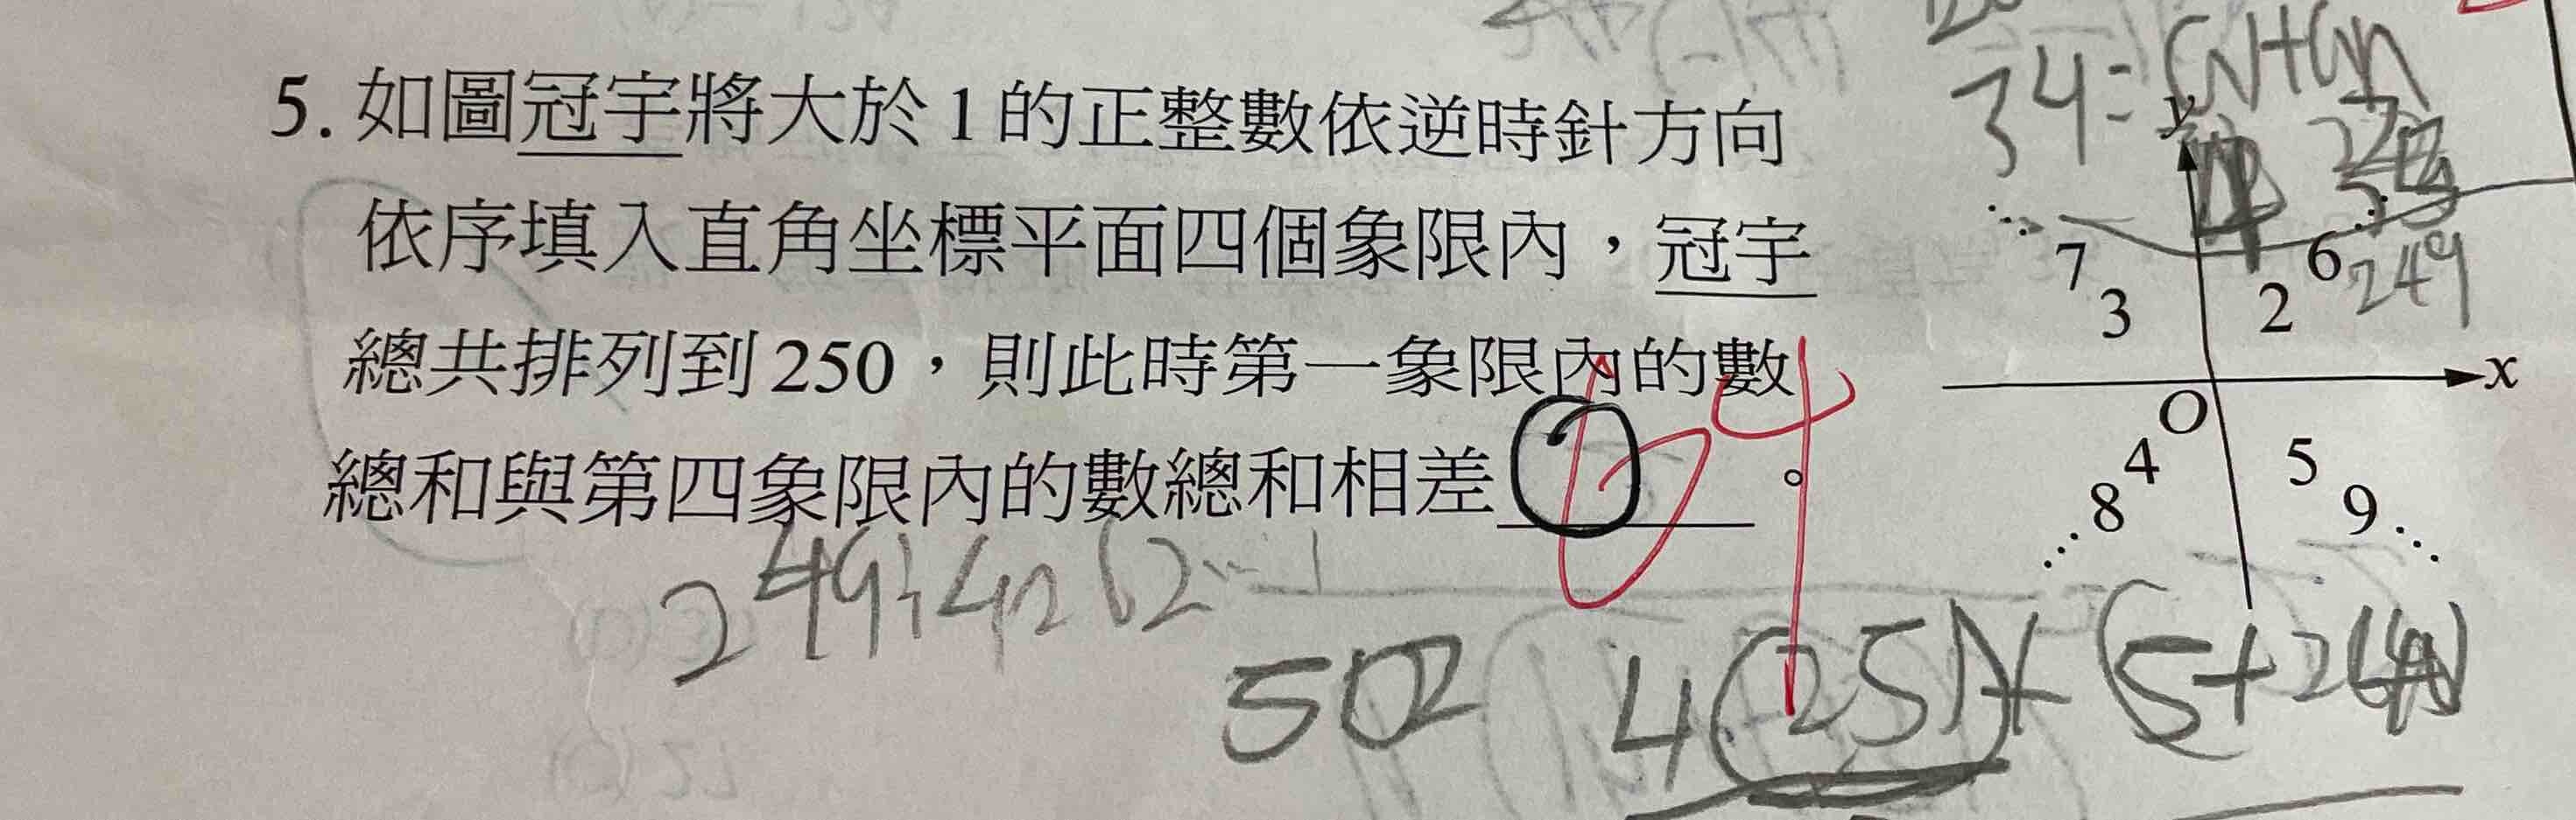 34=
5.如圖冠宇將大於1的正整數依逆時針方向
依序填入直角坐標平面四個象限內，冠宇
總共排列到250，則此時第一象限內的數
總和與第四象限內的數總和相差 。
64
y
7 6
3 2
249
x
O
4 5
8 9
249÷4=62…1
502
4(251)+(5+